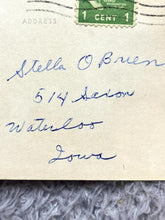 1 CENT 1
ADDRESS
Stella O Brien
514 Saxon
Waterloo
Iowa